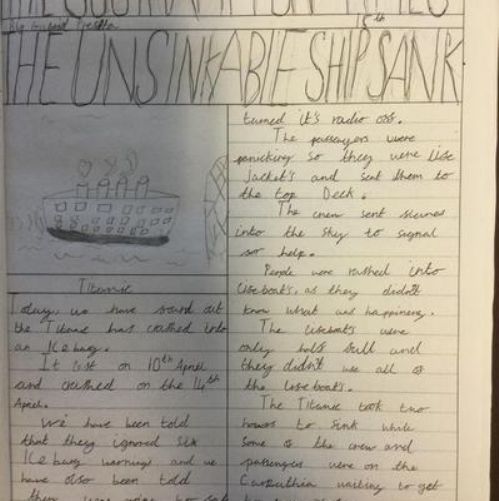 THE SOUTHAMPTON TIMES
15th
THE UNSINKABLE SHIP SANK
Titanic
Today, we have found out
the Titanic has crashed into
an Ice burg.
It left on 10th April
and crashed on the 14th
April.
We have been told
that they ignored six
Ice burg warnings and we
have also been told
turned it's radio off.
The passengers were
panicking so they were life
Jacket's and sent them to
the top Deck.
The crew sent
into the sky to signal
for help.
People were rushed into
lifeboats, as they didn't
know what was happening.
The lifeboats were
only half full and
they didn't use all of
the lifeboats.
The Titanic took two
hours to sink while
some of the crew and
passengers were on the
Carpathia waiting to get